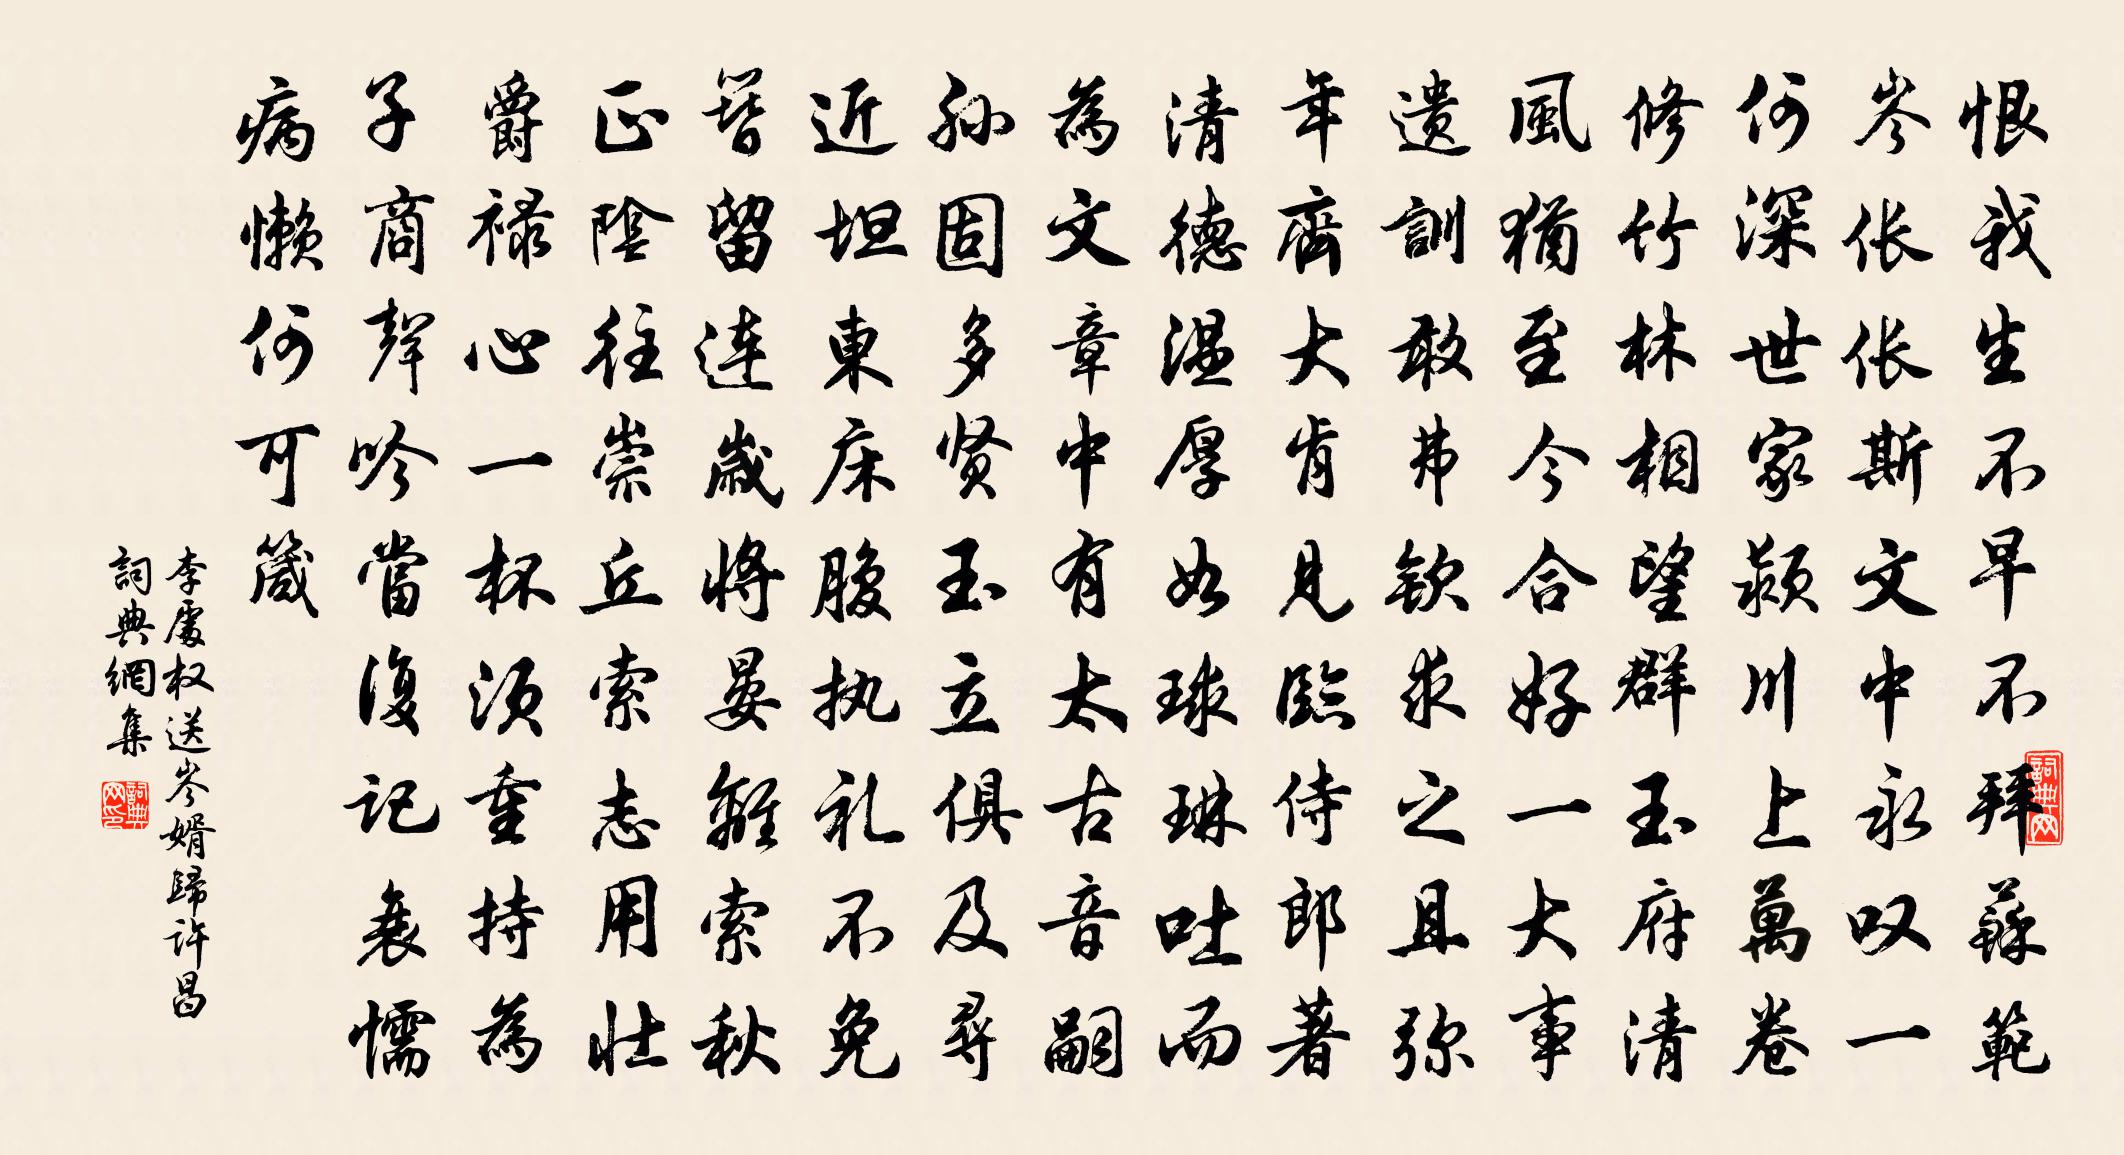 恨我生不早不拜蘇範
岑张张斯文中永叹一
何深世家颍川上萬卷
修竹林相望群玉府清
風猶至今合好一大事
遗訓敢弗欽求之且弥
年齊大肯見臨侍郎著
清德温厚如球琳吐而
為文章中有太古音嗣
孙固多贤玉立俱及尋
近坦東床腹执礼不免
簪留连歲将晏離索秋
正陰往崇丘索志用壮
爵禄心一杯须重持為
子商聲吟當復记衰懦
病懒何可箴
李處权送岑婿歸许昌
詞典網集
詞典网
詞典网印